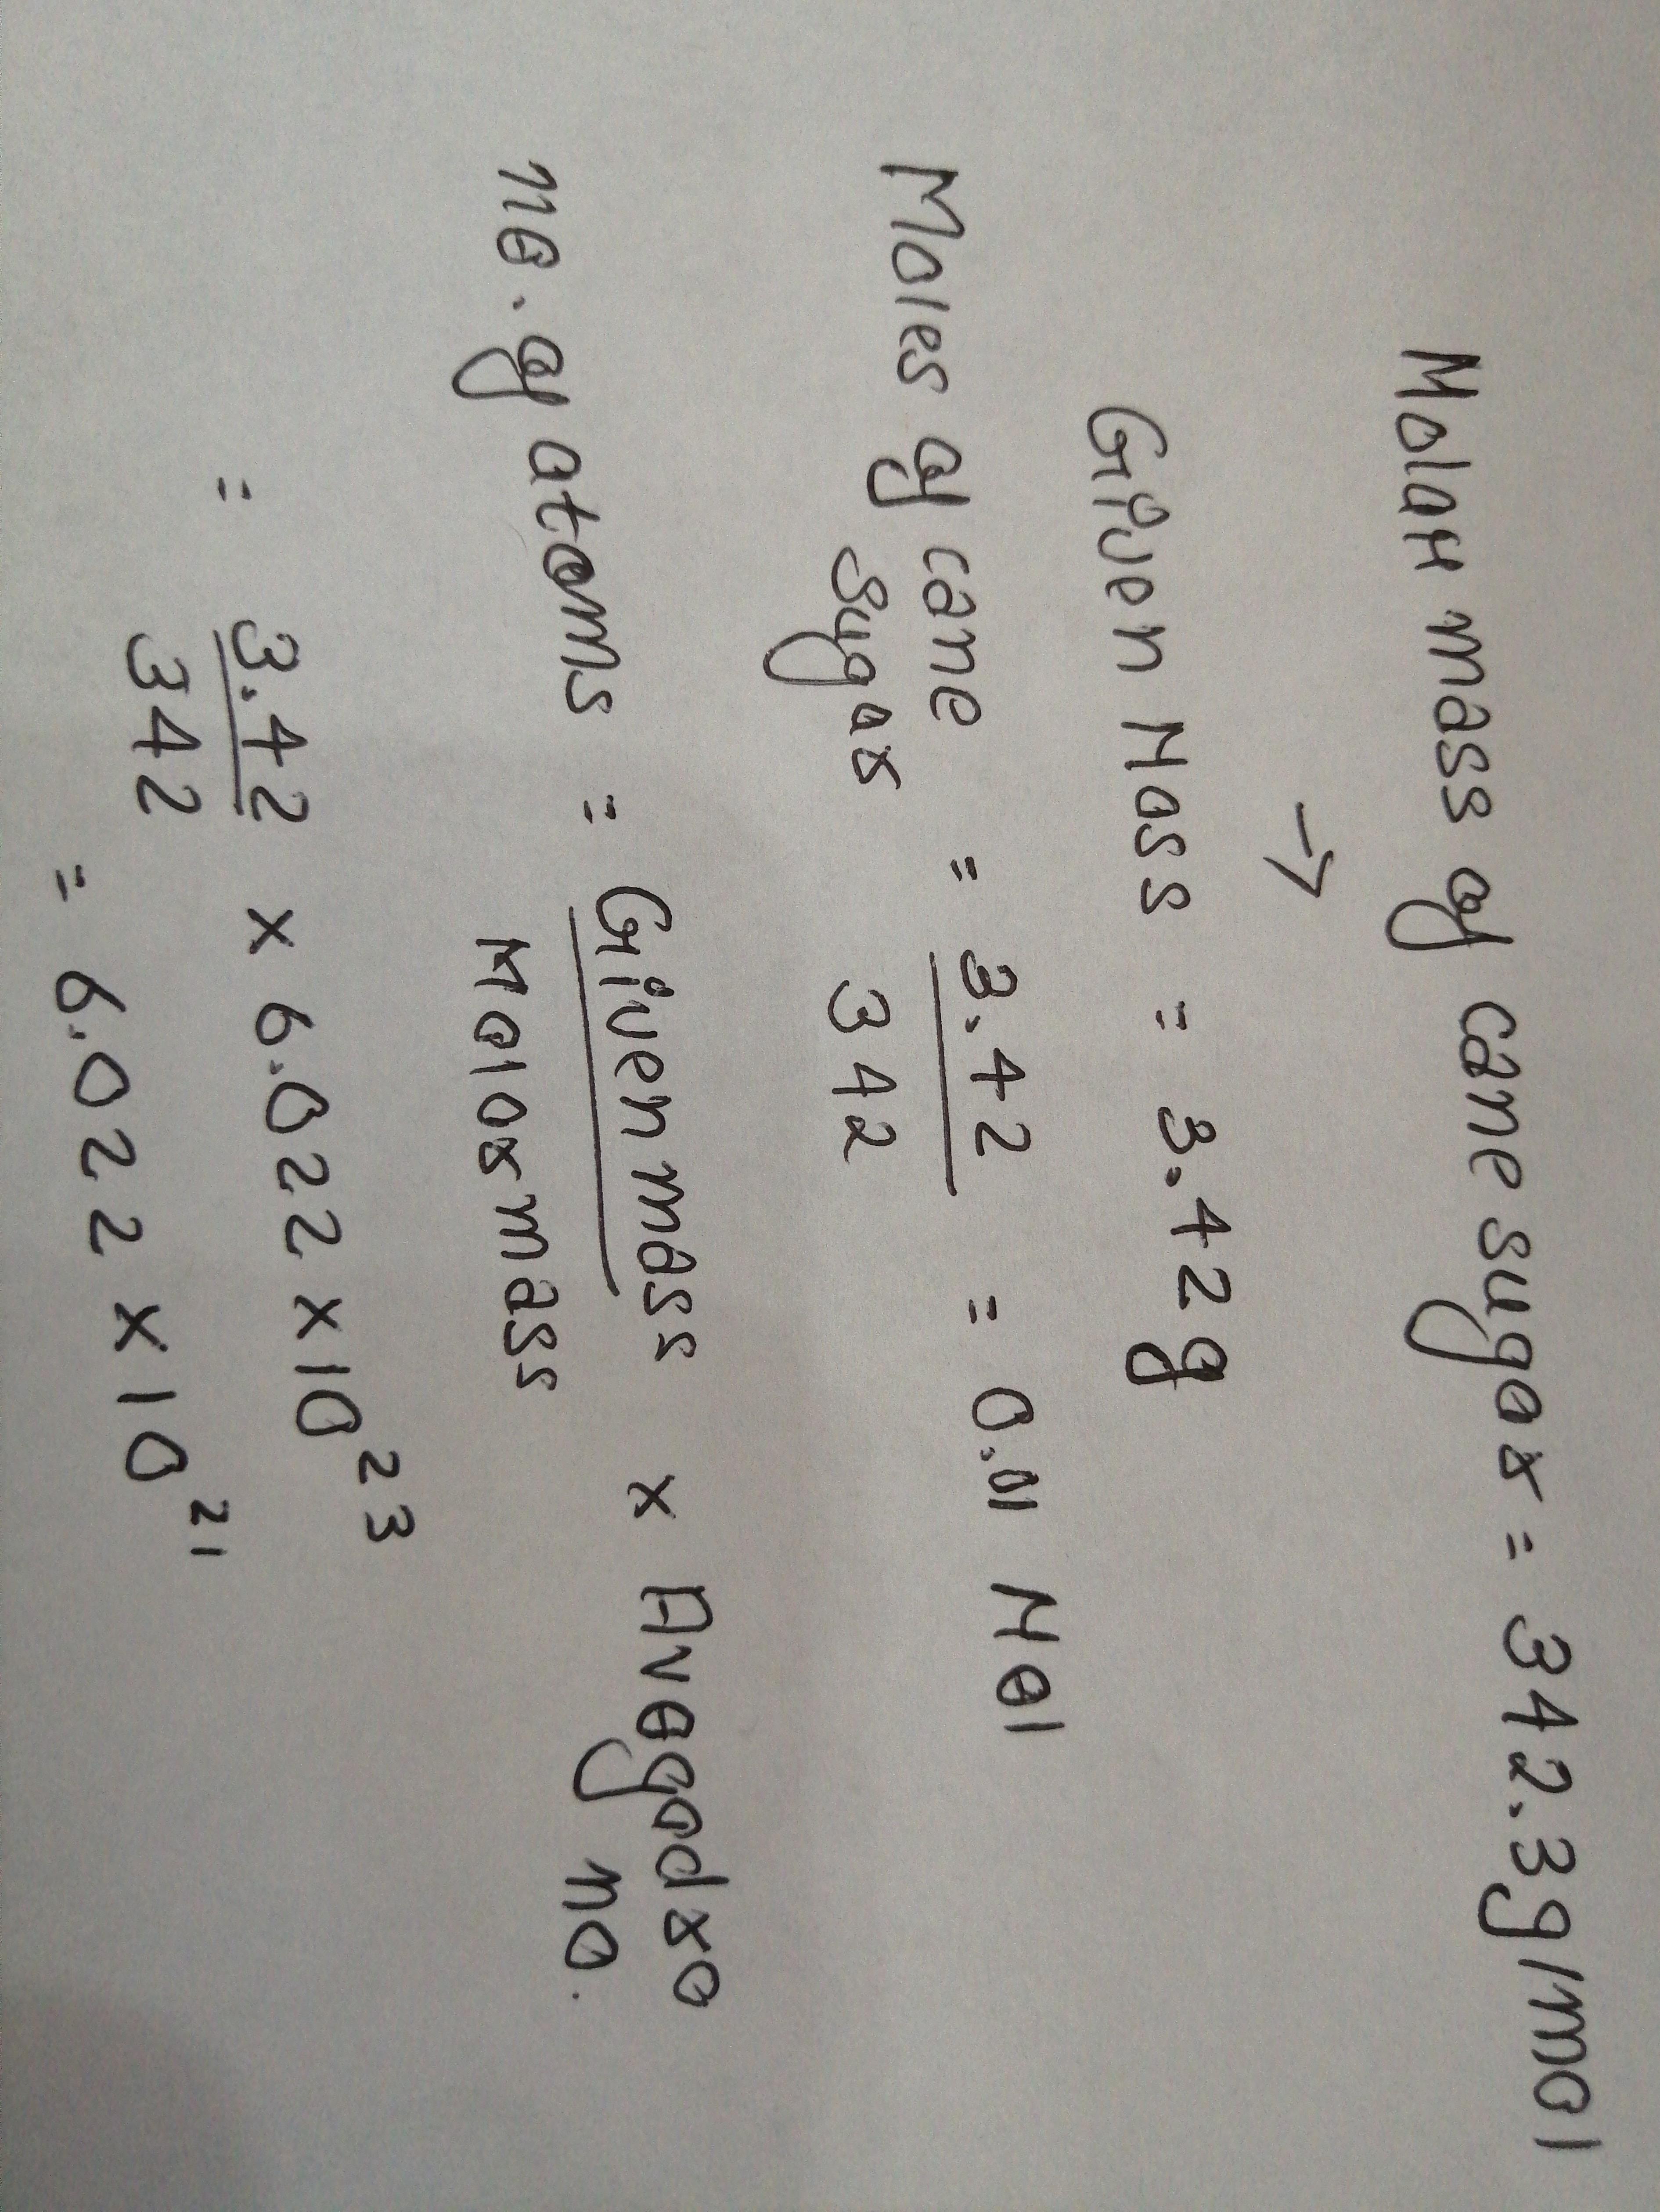 Molar mass of cane sugar = 342.3g/mol
→
Given Mass = 3.42g
Moles of cane sugar = 3.42 / 342 = 0.01 Mol
no. of atoms = Given mass / Molar mass × Avogadro no.
= 3.42 / 342 × 6.022 × 10²³
= 6.022 × 10²¹